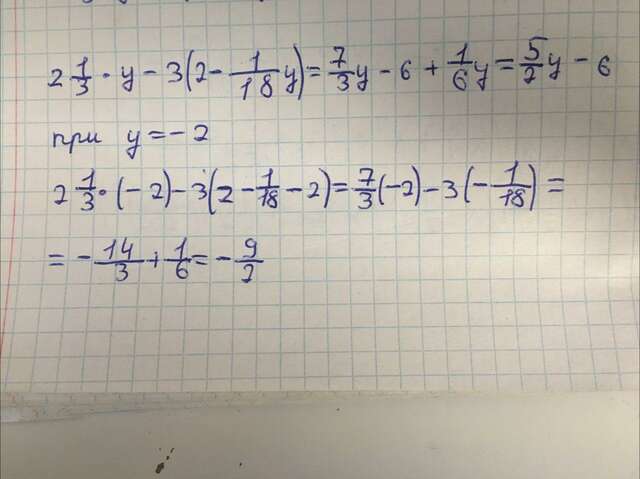 2 1/3 · y - 3(2 - 1/18 y) = 7/3 y - 6 + 1/6 y = 5/2 y - 6
при y = - 2
2 1/3 · (- 2) - 3(2 - 1/18 - 2) = 7/3 (-2) - 3(- 1/18) =
= - 14/3 + 1/6 = - 9/2